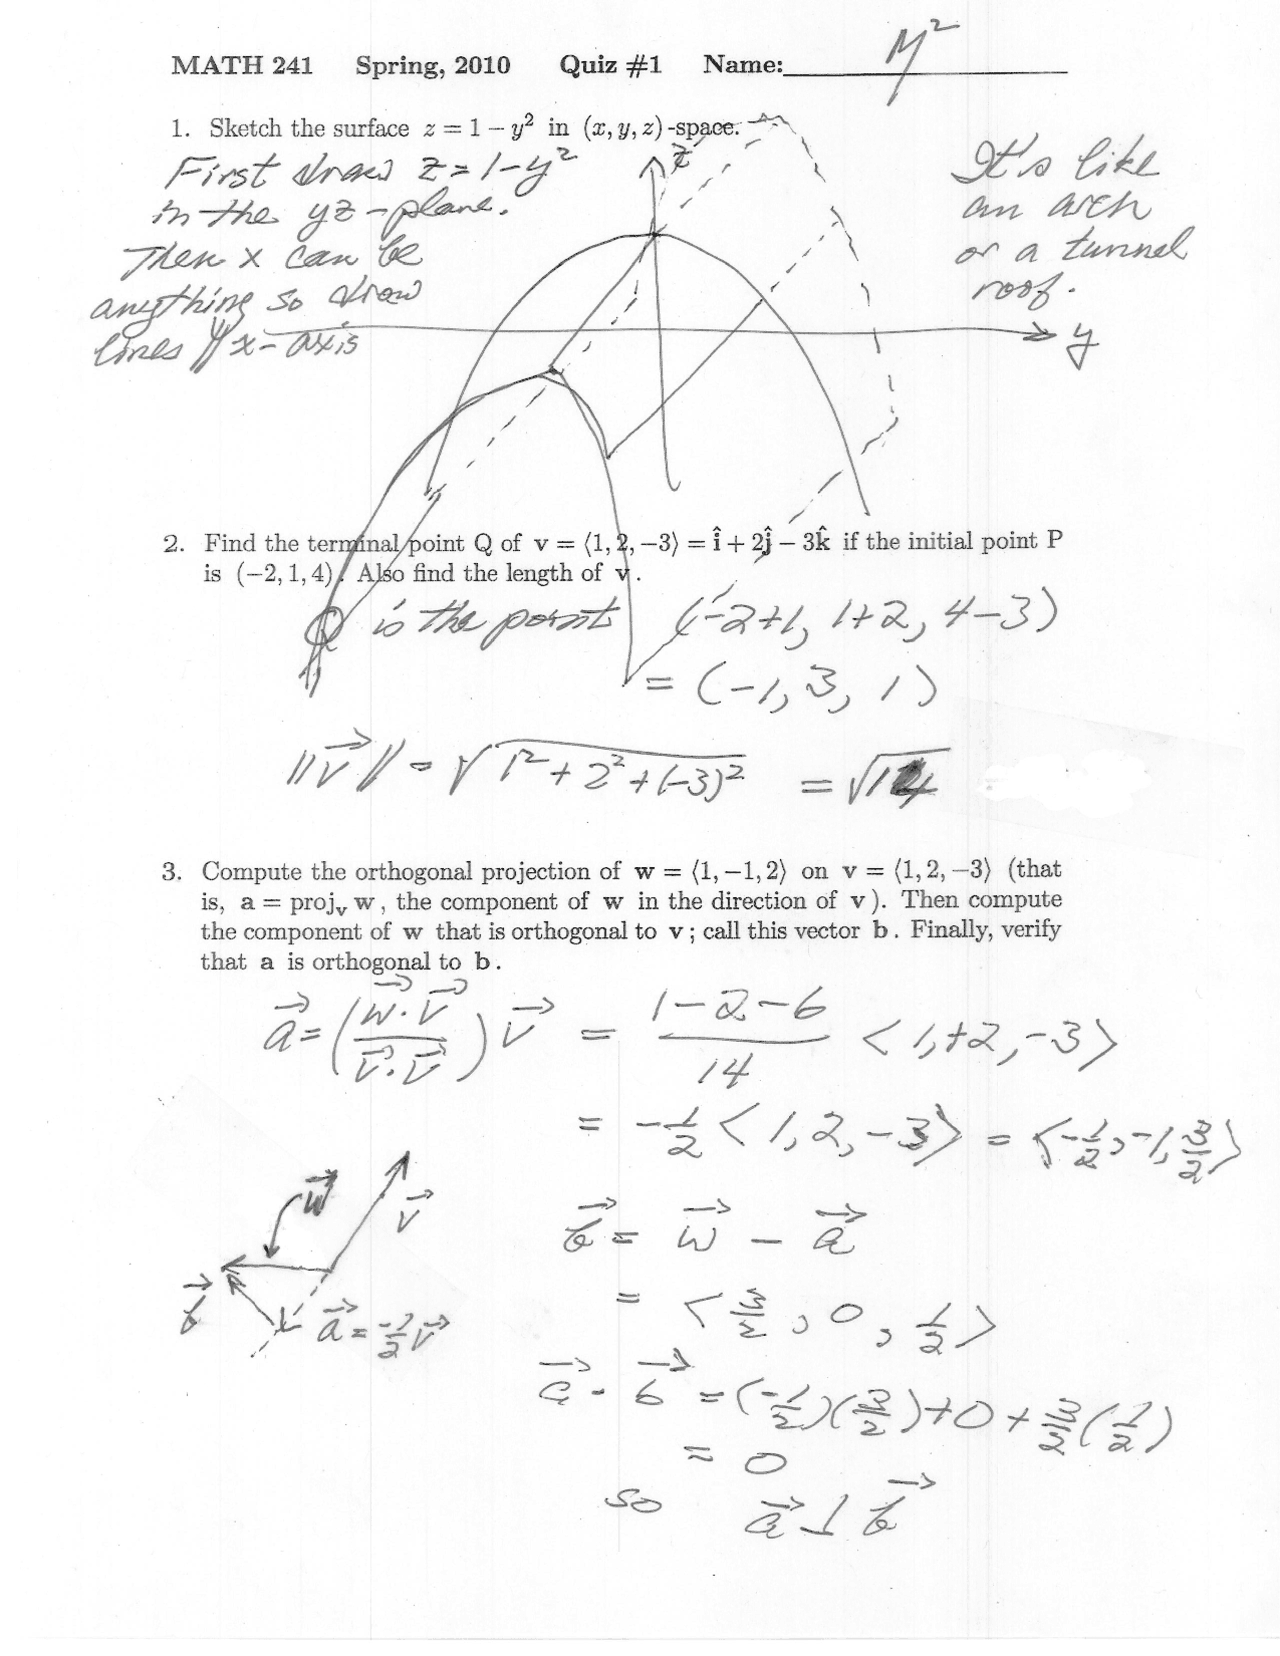 MATH 241 Spring, 2010 Quiz #1 Name: M²
1. Sketch the surface z = 1 − y² in (x, y, z)-space.
First draw z = 1−y²
in the yz-plane.
Then x can be
anything so draw
lines ∥ x-axis
It's like
an arch
or a tunnel
roof.
z
y
2. Find the terminal point Q of v = ⟨1, 2, −3⟩ = î + 2ĵ − 3k̂ if the initial point P
is (−2, 1, 4). Also find the length of v.
Q is the point (−2+1, 1+2, 4−3)
= (−1, 3, 1)
||v⃗|| = √(1² + 2² + (−3)²) = √14
3. Compute the orthogonal projection of w = ⟨1, −1, 2⟩ on v = ⟨1, 2, −3⟩ (that
is, a = projᵥ w, the component of w in the direction of v). Then compute
the component of w that is orthogonal to v; call this vector b. Finally, verify
that a is orthogonal to b.
a⃗ = (w⃗·v⃗ / v⃗·v⃗) v⃗ = (1−2−6)/14 <1,+2,−3>
= −1/2 <1, 2, −3> = <−1/2, −1, 3/2>
w⃗
v⃗
b⃗
a⃗ = −1/2 v⃗
b⃗ = w⃗ − a⃗
= <3/2, 0, 1/2>
a⃗ · b⃗ = (−1/2)(3/2) + 0 + 3/2(1/2)
= 0
so a⃗ ⊥ b⃗